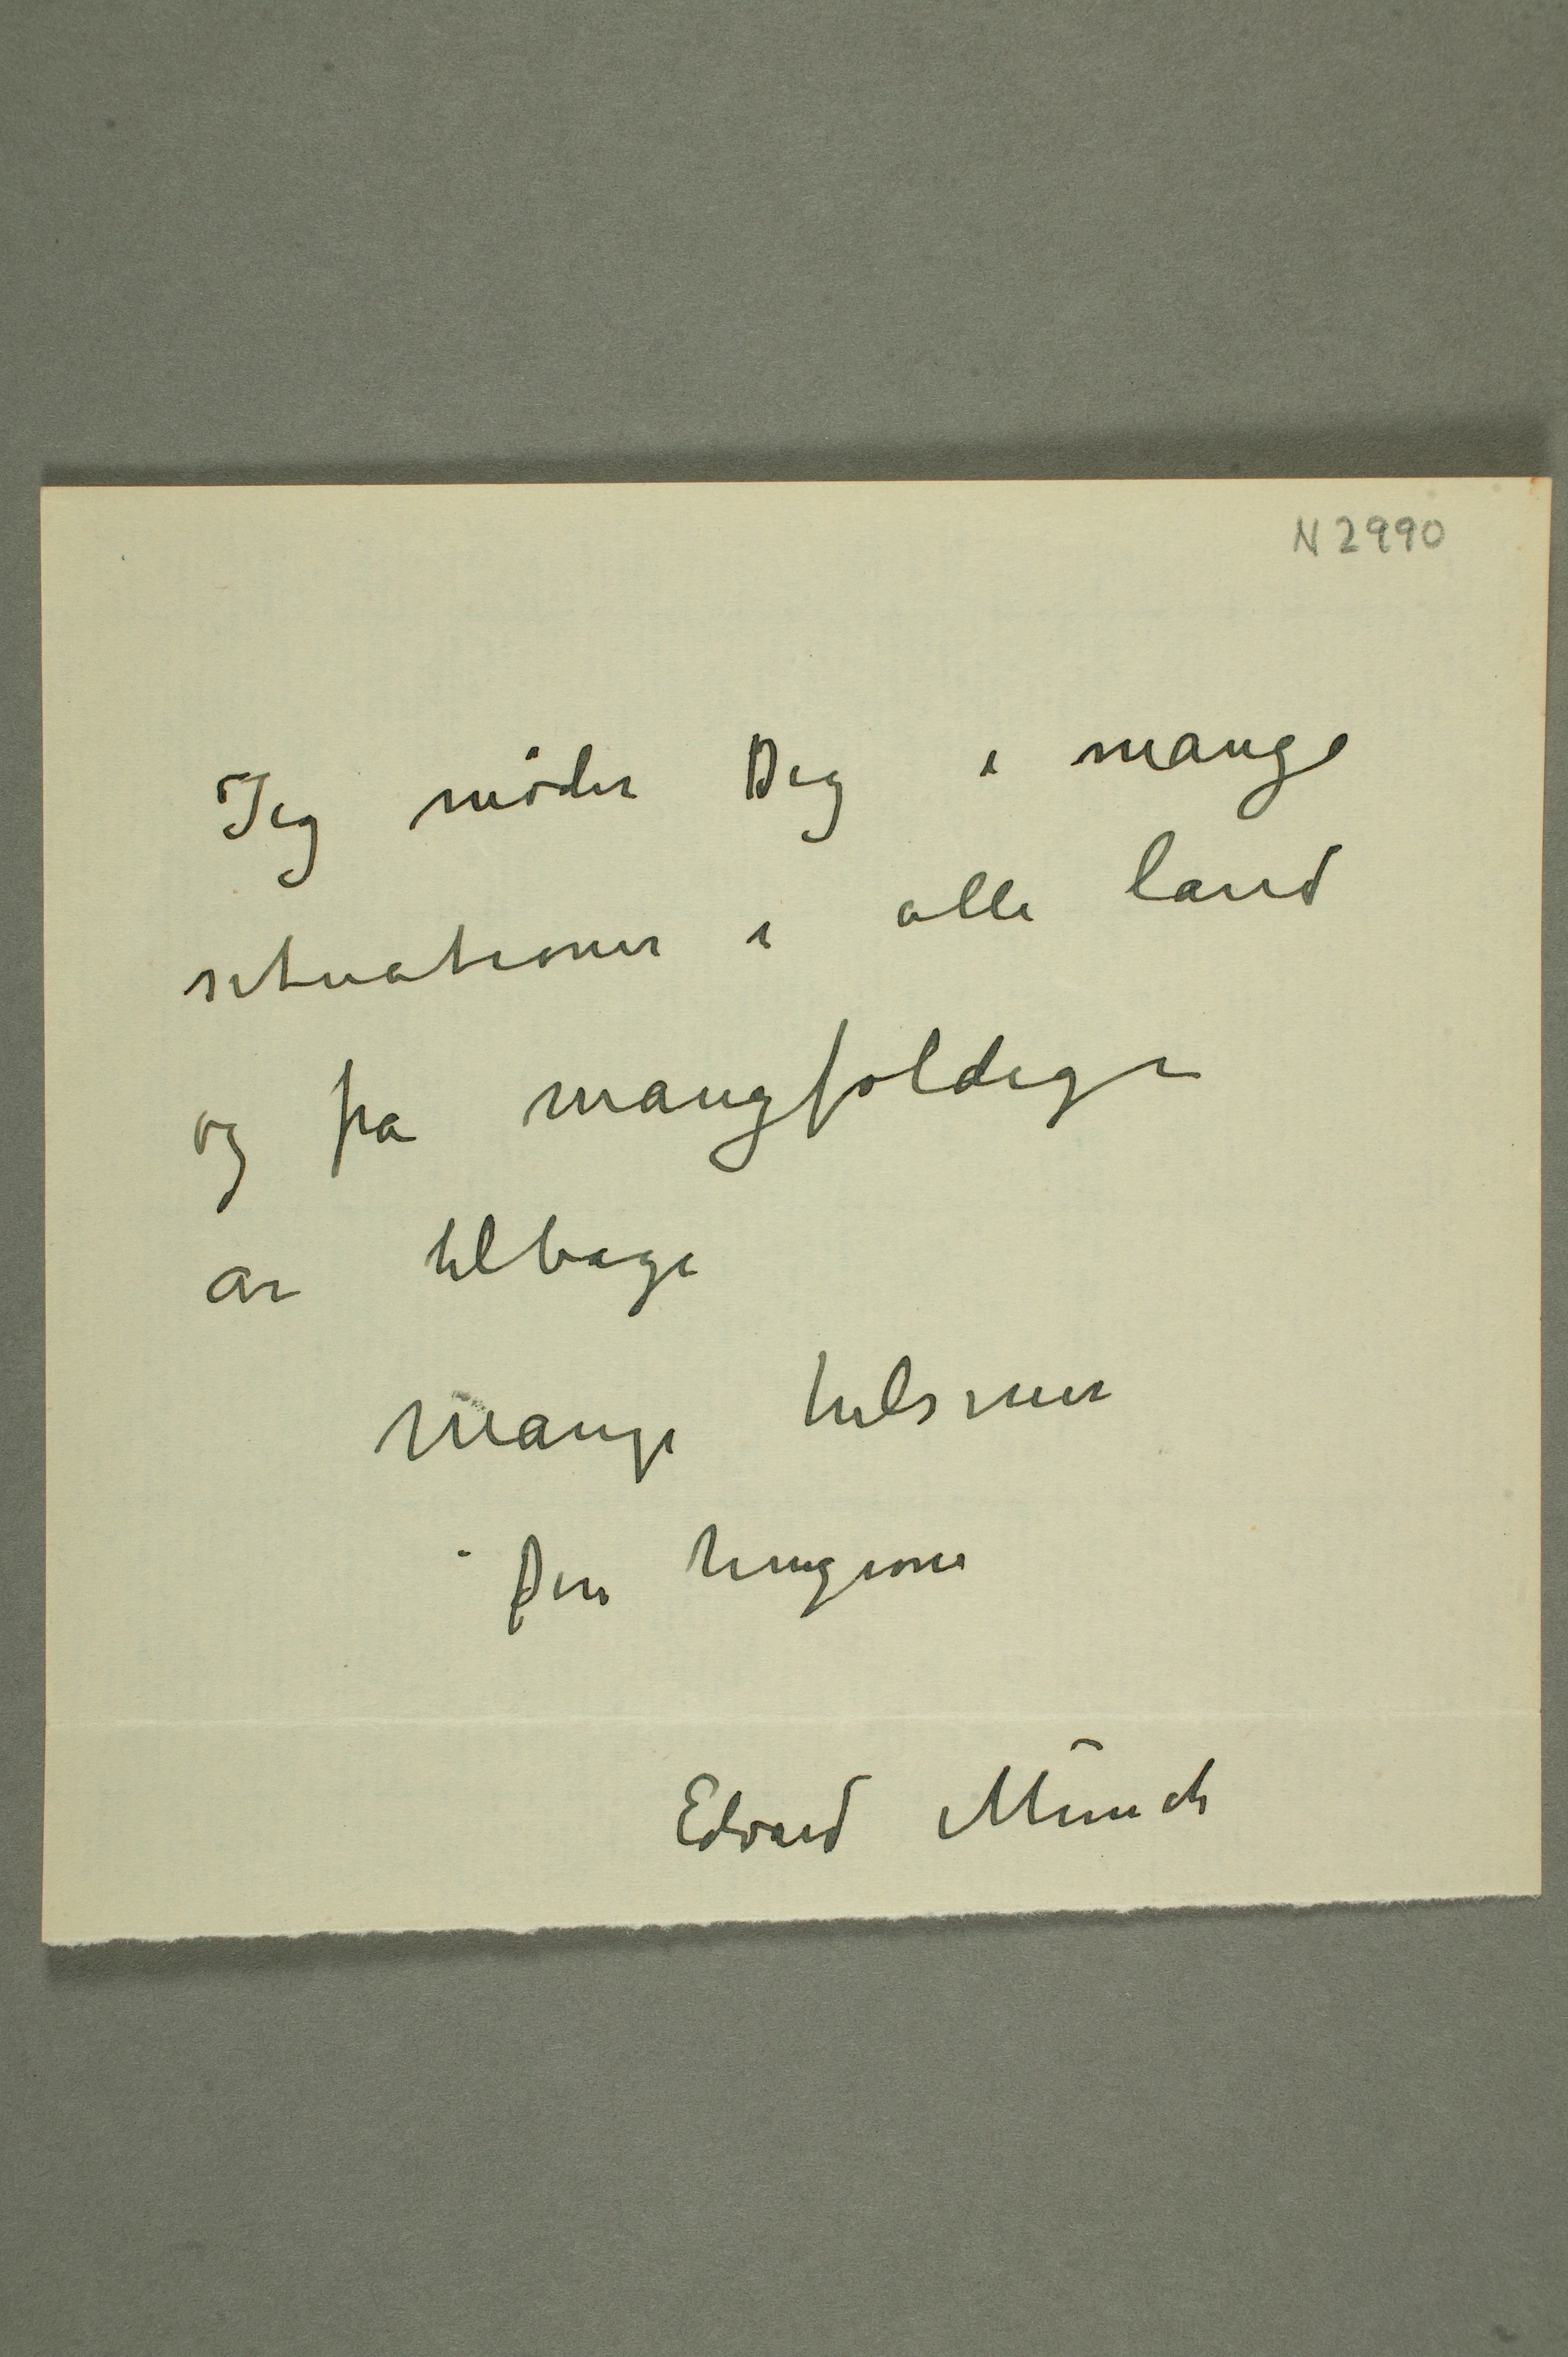 N 2990
Jeg möder Dig i mange
situationer i alle land
og fra mangfoldige
år tilbage
Mange hilsener
Din hengivne
Edvard Munch